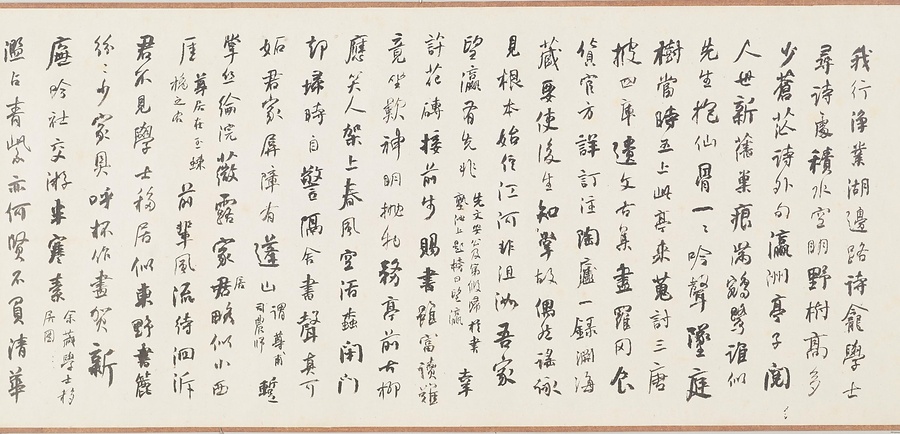 我行淨業湖邊路詩龕學士
尋詩處積水空明野樹高多
少蒼茫詩外句瀛洲亭子閱
人世新舊巢痕滿鸂鷘誰似
先生抱仙骨一一吟聲墜庭
樹當時五上此亭來蒐討三唐
披四庫遺文古集盡羅網食
貨官方詳訂注陶廬一錄淵海
藏要使後生知掌故偶然謠俗
見根本始信江河非沮洳吾家
望瀛有先兆 先文安公及第假歸於書塾池上題榜曰望瀛 幸
許花磚接前步賜書雖富讀難
竟坐歎神明拋牝務亭前古柳
應笑人架上春風空活蠹閉門
卻掃時自警隔舍書聲真可
妬君家屏障有蓬山 謂尊甫司農師 暫
掌絲綸院薇露家居略似小西
厓 尊居在玉蝀橋之右 前輩風流待洄泝
君不見學士移居似東野書籠
紛紛少家具呼杯作畫賀新
廬吟社交游半寒素 余藏學士移居圖
濫占青紫亦何賢不負清華